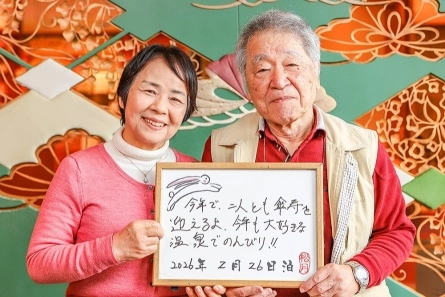 今年で、二人とも傘寿を
迎えるよ、今年も大好きな
温泉でのんびり!!
2026年 2月26日泊